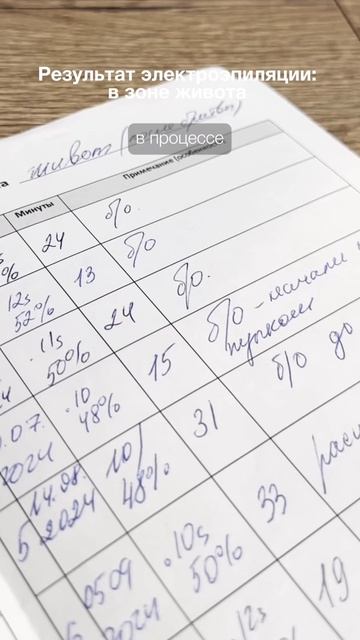 Результат электроэпиляции:
в зоне живота
в процессе
живот (после бритвы)
Минуты
Примечание (особенн
% 24 б/о.
12s 52% 13 б/о
11s 50% 24 б/о.
.07. 2024 .10 48% 15 б/о - начали
пупком
14.08. 2024 10/ 48% 31 б/о до
05 09 2024 .10s 50% 33
12s 19